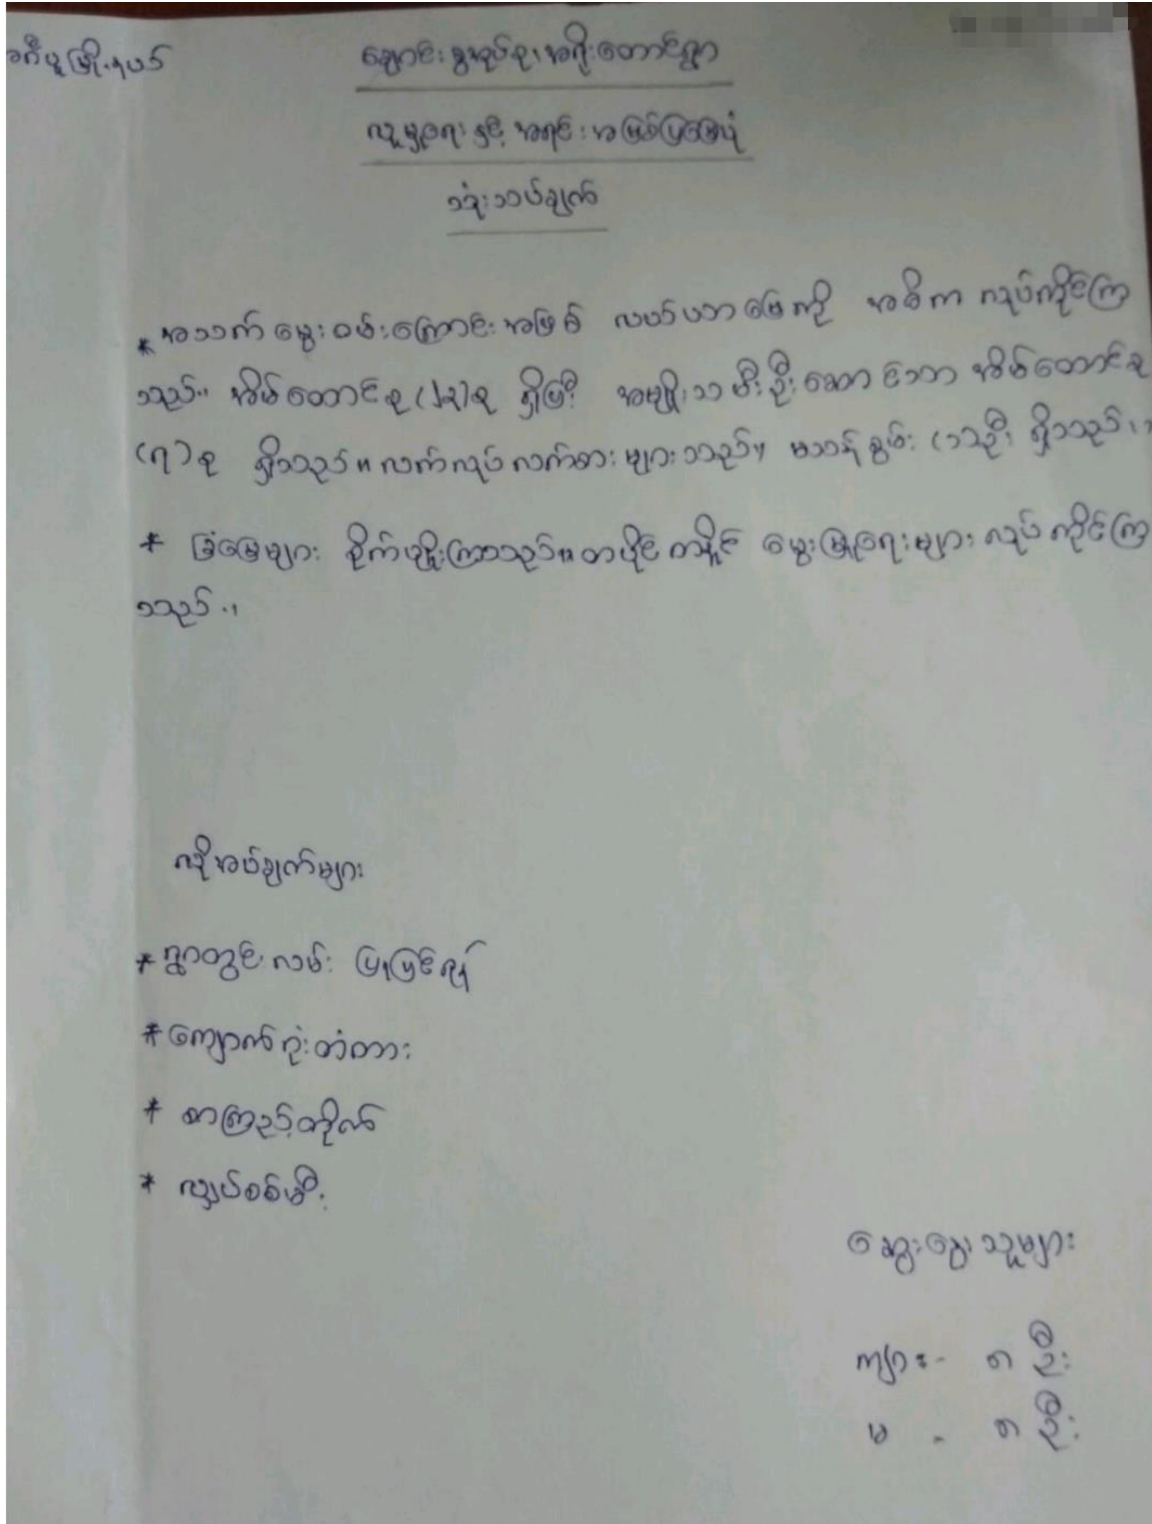 ငဖဲပူမြို့နယ်
ချောင်းခွအုပ်စု၊ အရိုးတောင်ရွာ
လူမှုရေးနှင့် အရင်းအမြစ်ပြမြေပုံ
သုံးသပ်ချက်
* အသက်မွေးဝမ်းကြောင်းအဖြစ် လယ်ယာမြေကို အဓိက လုပ်ကိုင်ကြ
သည်။ အိမ်ထောင်စု စု ရှိပြီး အမျိုးသမီးဦးဆောင်သော အိမ်ထောင်စု
(၇)စု ရှိသည်။ လက်လုပ်လက်စားများသည်။ မသန်စွမ်း ဦး ရှိသည်။
* ခြံမြေများ စိုက်ပျိုးကြသည်။ တပိုင်တနိုင် မွေးမြူရေးများ လုပ်ကိုင်ကြ
သည်။
လိုအပ်ချက်များ
* ရွာတွင်းလမ်း ပြုပြင်ရန်
* ကျောက်ဂုံးတံတား
* စာကြည့်တိုက်
* လျှပ်စစ်မီး
ဆွေးနွေးသူများ
ကျား - ၈ ဦး
မ - ၈ ဦး